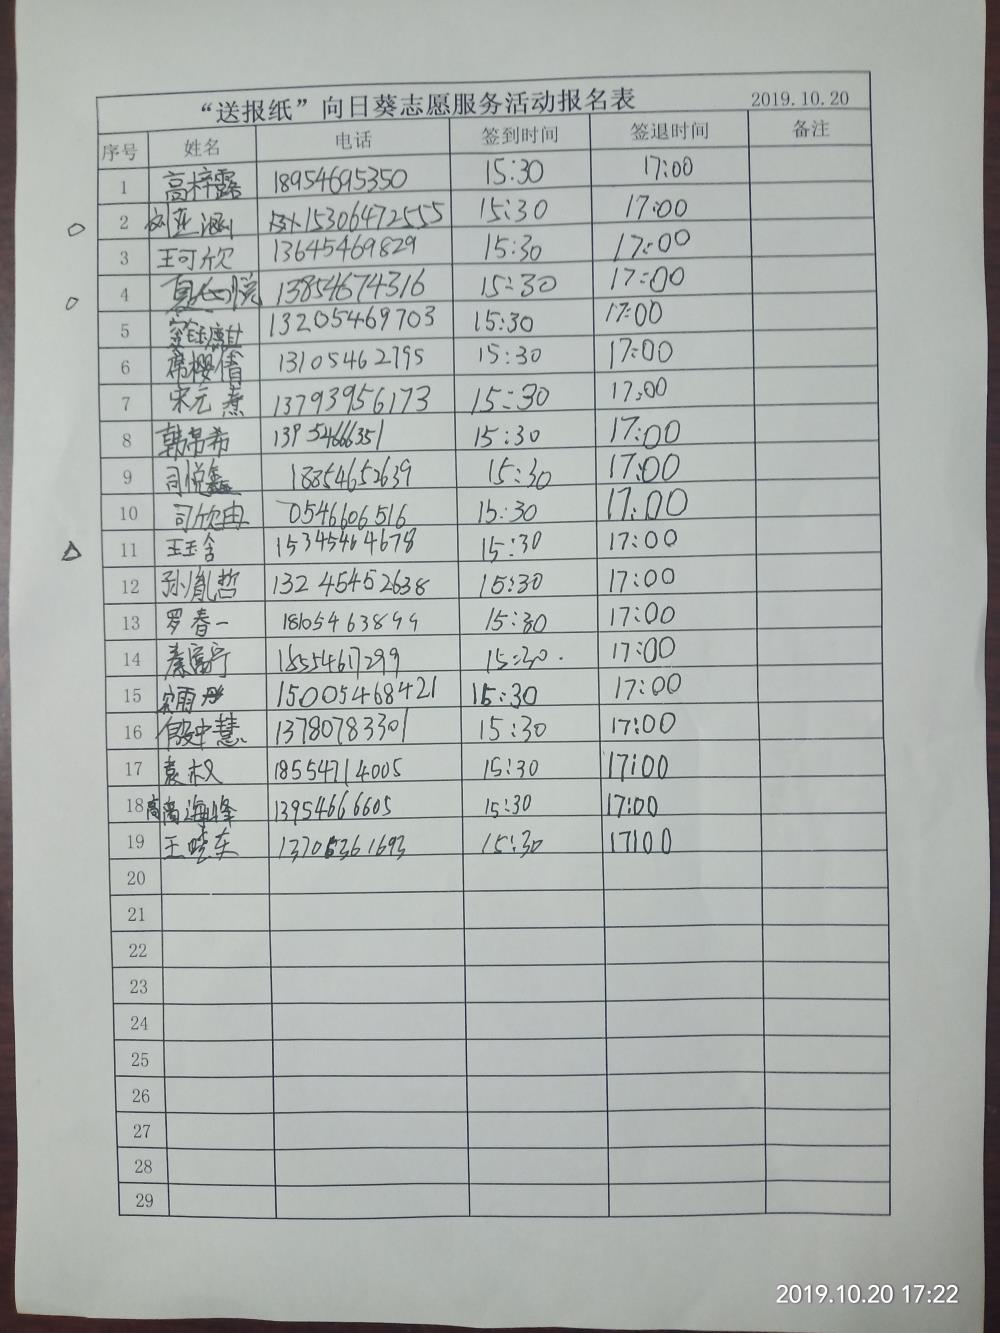 “送报纸”向日葵志愿服务活动报名表 2019.10.20
序号 姓名 电话 签到时间 签退时间 备注
1 高梓露 18954695350 15:30 17:00
2 刘亚涵 15306472555 15:30 17:00
3 王可欣 13645469829 15:30 17:00
4 夏心悦 13854674316 15:30 17:00
5 13205469703 15:30 17:00
6 13105462795 15:30 17:00
7 宋元熹 13793956173 15:30 17:00
8 韩帛希 15:30 17:00
9 司悦鑫 18854652639 15:30 17:00
10 司欣冉 0546606516 15:30 17:00
11 王玉含 15345464678 15:30 17:00
12 孙胤哲 13245452638 15:30 17:00
13 罗春一 18105463899 15:30 17:00
14 秦富宁 18554617299 15:30 17:00
15 15005468421 15:30 17:00
16 殷中慧 13780783301 15:30 17:00
17 袁权 18554714005 15:30 17:00
18 高海峰 13954666605 15:30 17:00
19 王晓东 13705361693 15:30 17:00
20
21
22
23
24
25
26
27
28
29
2019.10.20 17:22